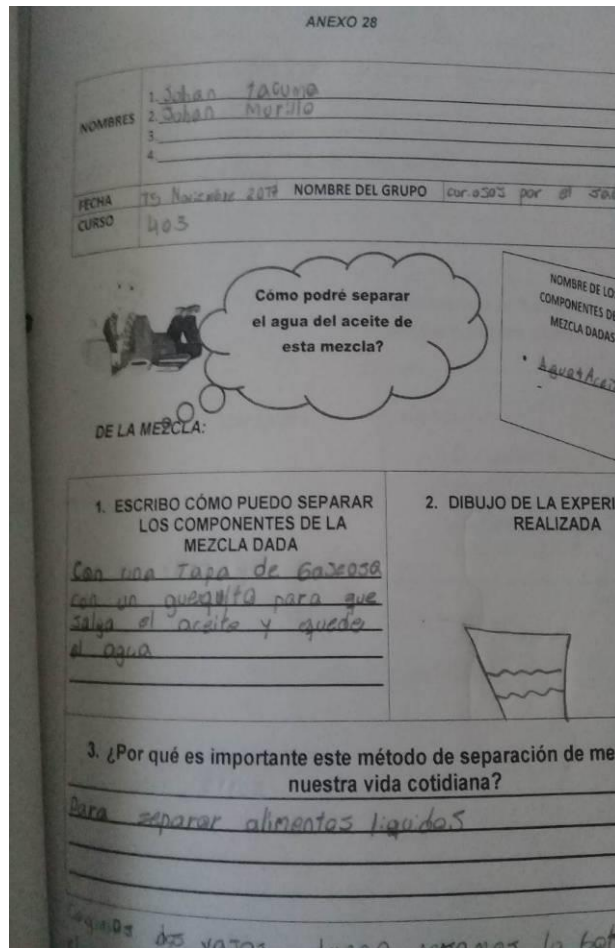 ANEXO 28
NOMBRES
1. Johan Tacuma
2. Johan Murillo
3.
4.
FECHA
Noviembre 2017
NOMBRE DEL GRUPO
por el
CURSO
403
Cómo podré separar
el agua del aceite de
esta mezcla?
NOMBRE DE LO
COMPONENTES DE
MEZCLA DADAS
DE LA MEZCLA:
1. ESCRIBO CÓMO PUEDO SEPARAR
LOS COMPONENTES DE LA
MEZCLA DADA
Con una Tapa de Gaseosa
con un guequito para que
salga el aceite y quede
el agua
2. DIBUJO DE LA EXPERI
REALIZADA
3. ¿Por qué es importante este método de separación de me
nuestra vida cotidiana?
Para separar alimentos liquidos
dos vasos